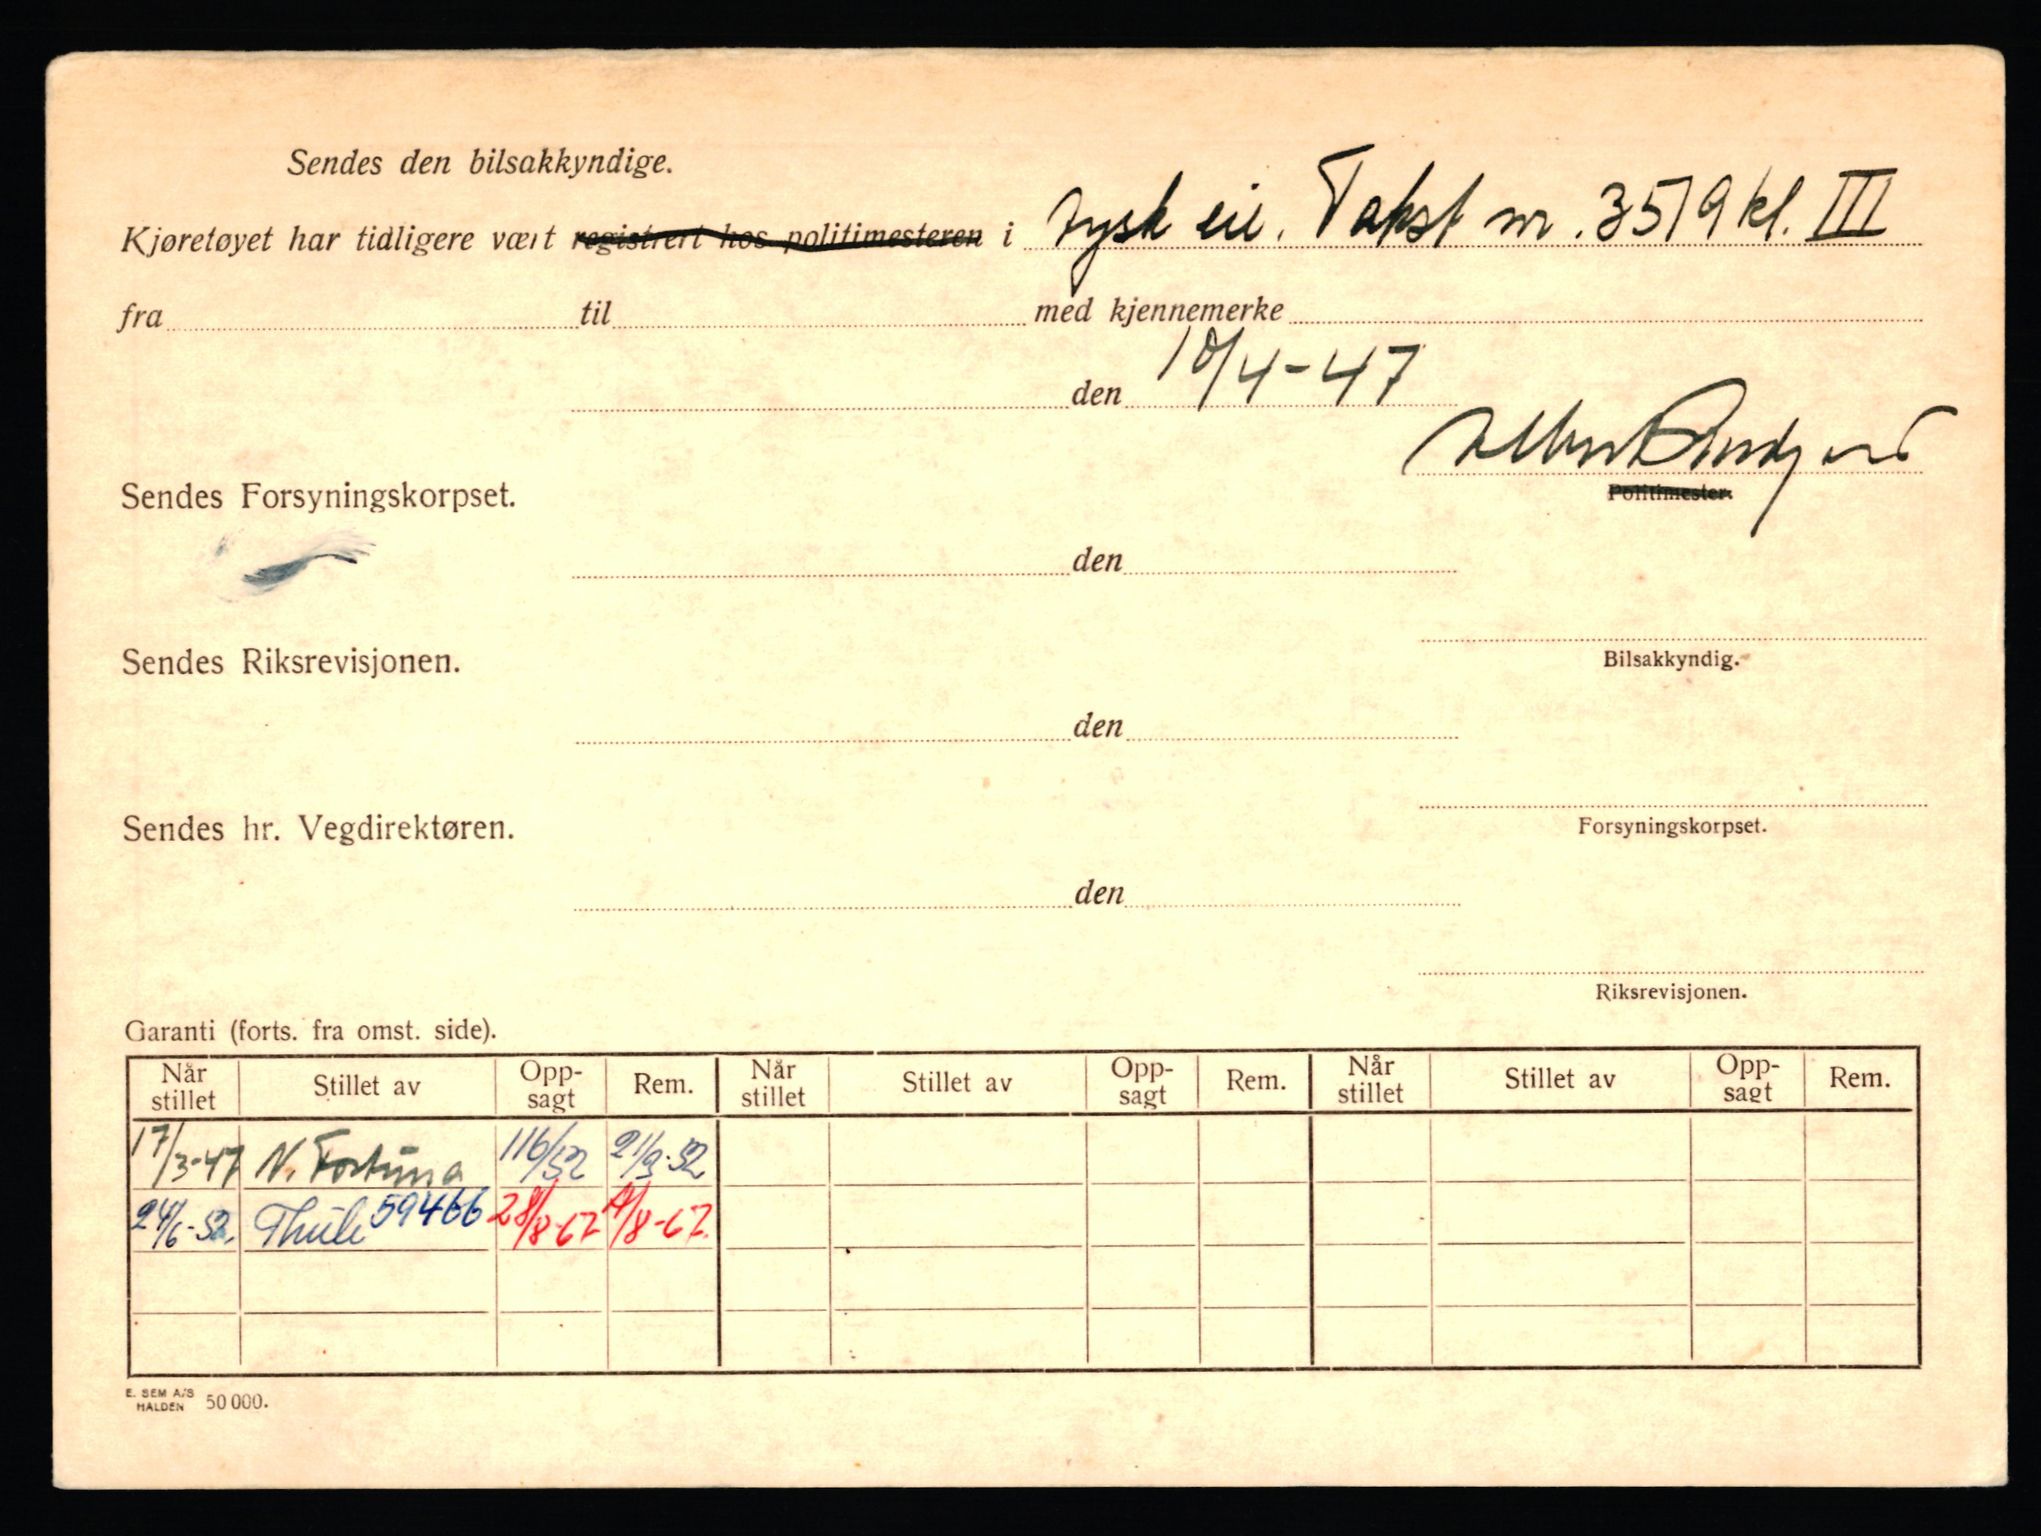 Sendes den bilsakkyndige.
Kjøretøyet har tidligere vært registrert hos politimesteren i tysk eie. Takst nr. 3519 kl. III
fra til med kjennemerke
den 10/4-47
Politimester.
Sendes Forsyningskorpset.
den
Bilsakkyndig.
Sendes Riksrevisjonen.
den
Forsyningskorpset.
Sendes hr. Vegdirektøren.
den
Riksrevisjonen.
Garanti (forts. fra omst. side).
Når stillet Stillet av Opp-sagt Rem. Når stillet Stillet av Opp-sagt Rem. Når stillet Stillet av Opp-sagt Rem.
17/3-47 N. Fortuna 116/52 21/9-52
24/6-52. Thule 59466 28/8-67 /8-67.
E. SEM A/S
HALDEN 50 000.